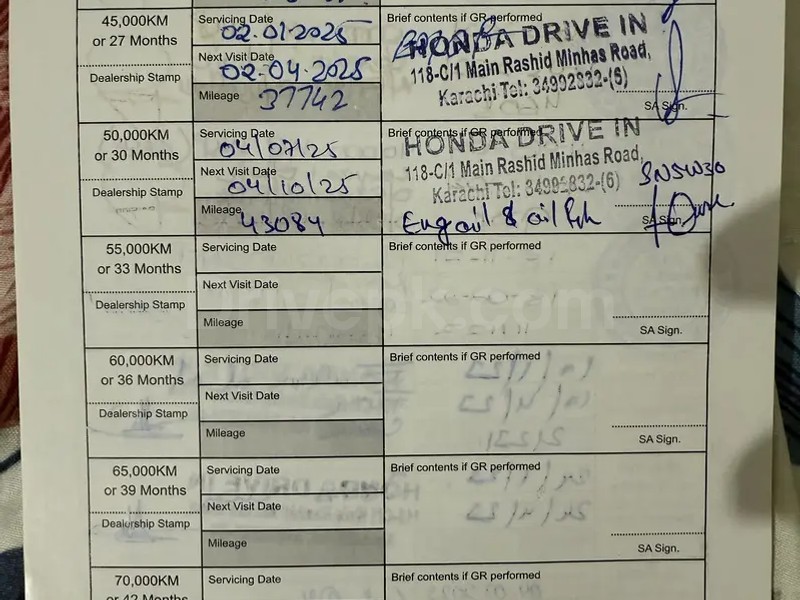 45,000KM
or 27 Months
Dealership Stamp
Servicing Date
02.01.2025
Next Visit Date
02.04.2025
Mileage 37742
Brief contents if GR performed
HONDA DRIVE IN
118-C/1 Main Rashid Minhas Road,
Karachi Tel: 34992832-(6)
SA Sign.
50,000KM
or 30 Months
Dealership Stamp
Servicing Date
04/07/25
Next Visit Date
04/10/25
Mileage 43084
Brief contents if GR performed
HONDA DRIVE IN
118-C/1 Main Rashid Minhas Road,
Karachi Tel: 34992832-(6)
Eng oil & oil
SA Sign.
55,000KM
or 33 Months
Dealership Stamp
Servicing Date
Next Visit Date
Mileage
Brief contents if GR performed
SA Sign.
60,000KM
or 36 Months
Dealership Stamp
Servicing Date
Next Visit Date
Mileage
Brief contents if GR performed
SA Sign.
65,000KM
or 39 Months
Dealership Stamp
Servicing Date
Next Visit Date
Mileage
Brief contents if GR performed
SA Sign.
70,000KM
or 42 Months
Servicing Date
Brief contents if GR performed